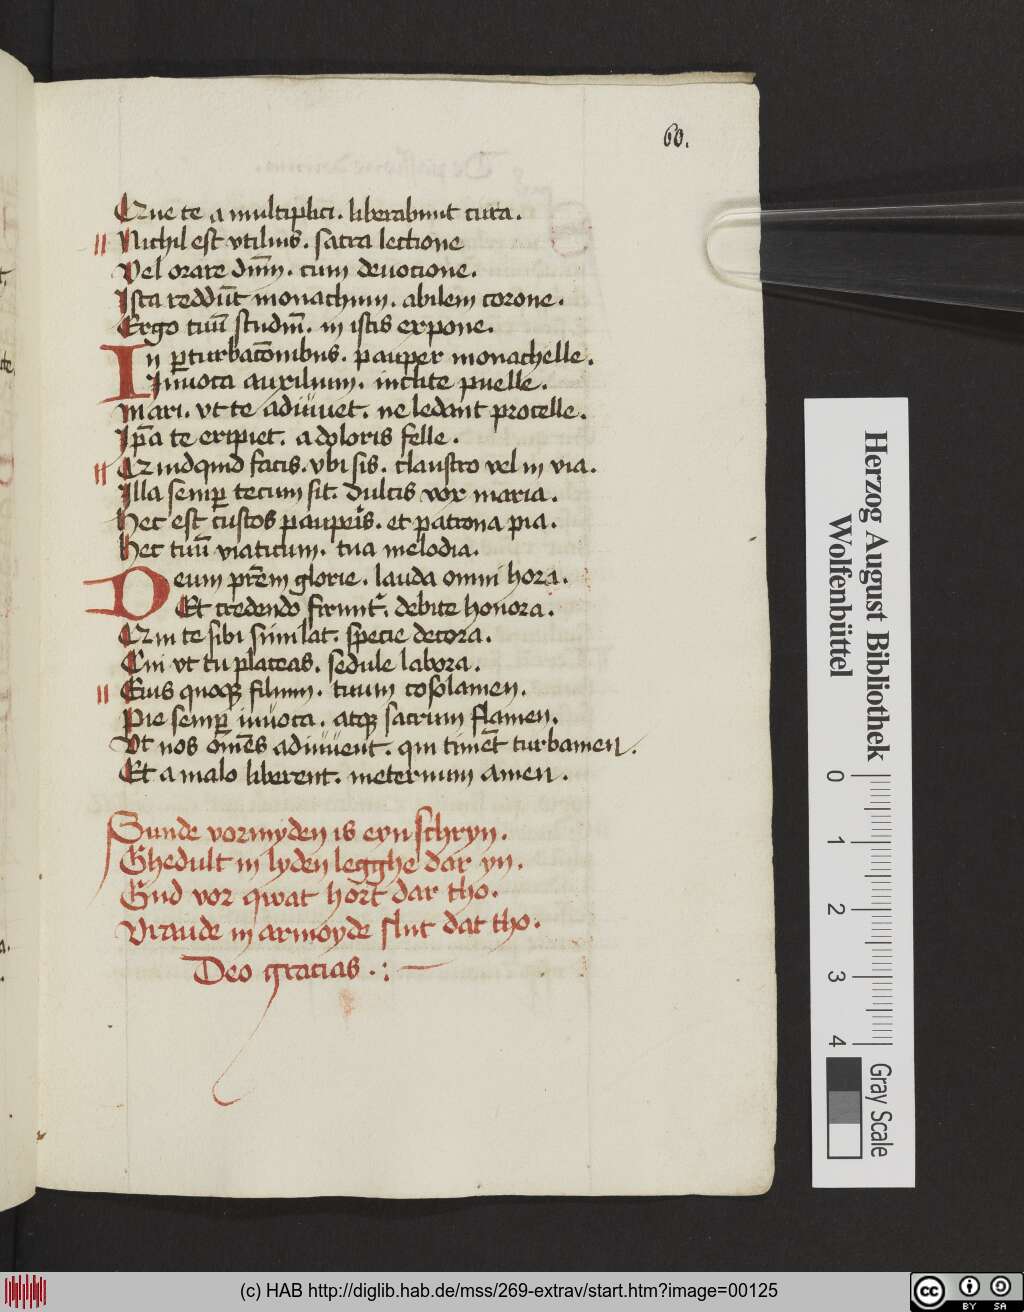 60.
Que te a multiplici. liberabunt cura.
Nichil est vtilius. sacra lectione
Vel orare dn̄m. cum deuocione.
Ista reddūt monachum. abilem corone.
Ergo tuū studiū. in istis expone.
In ꝑturbac̄onibus. pauper monachelle.
Inuoca auxilium. inclite puelle.
Mari. vt te adiuuet. ne ledant procelle.
Ip̄a te eripiet. a doloris felle.
Quidquid facis. vbi sis. claustro vel in via.
Illa semꝑ tecum sit. dulcis vox maria.
Hec est custos pauperis. et patrona pia.
Hec tuū viaticum. tua melodia.
Deum pr̄em glorie. lauda omni hora.
Et credendo firmit̕. debite honora.
Qui te sibi simˀlat. specie decora.
Cui vt tu placeas. sedule labora.
Eius quoqꝫ filium. tuum cōsolamen.
Pie semꝑ inuoca. atqꝫ sacrum flamen.
Vt nos om̄es adiuuent. qui timēt turbamen.
Et a malo liberent. ineternum amen.
Sunde vormyden is eyn schryn.
Ghedult in lyden legghe dar yn.
Gud vor qwat hort dar tho.
Vraude in armoyde slut dat tho.
Deo gracias .:
Herzog August Bibliothek
Wolfenbüttel
0 1 2 3 4
Gray Scale
(c) HAB http://diglib.hab.de/mss/269-extrav/start.htm?image=00125
cc BY SA